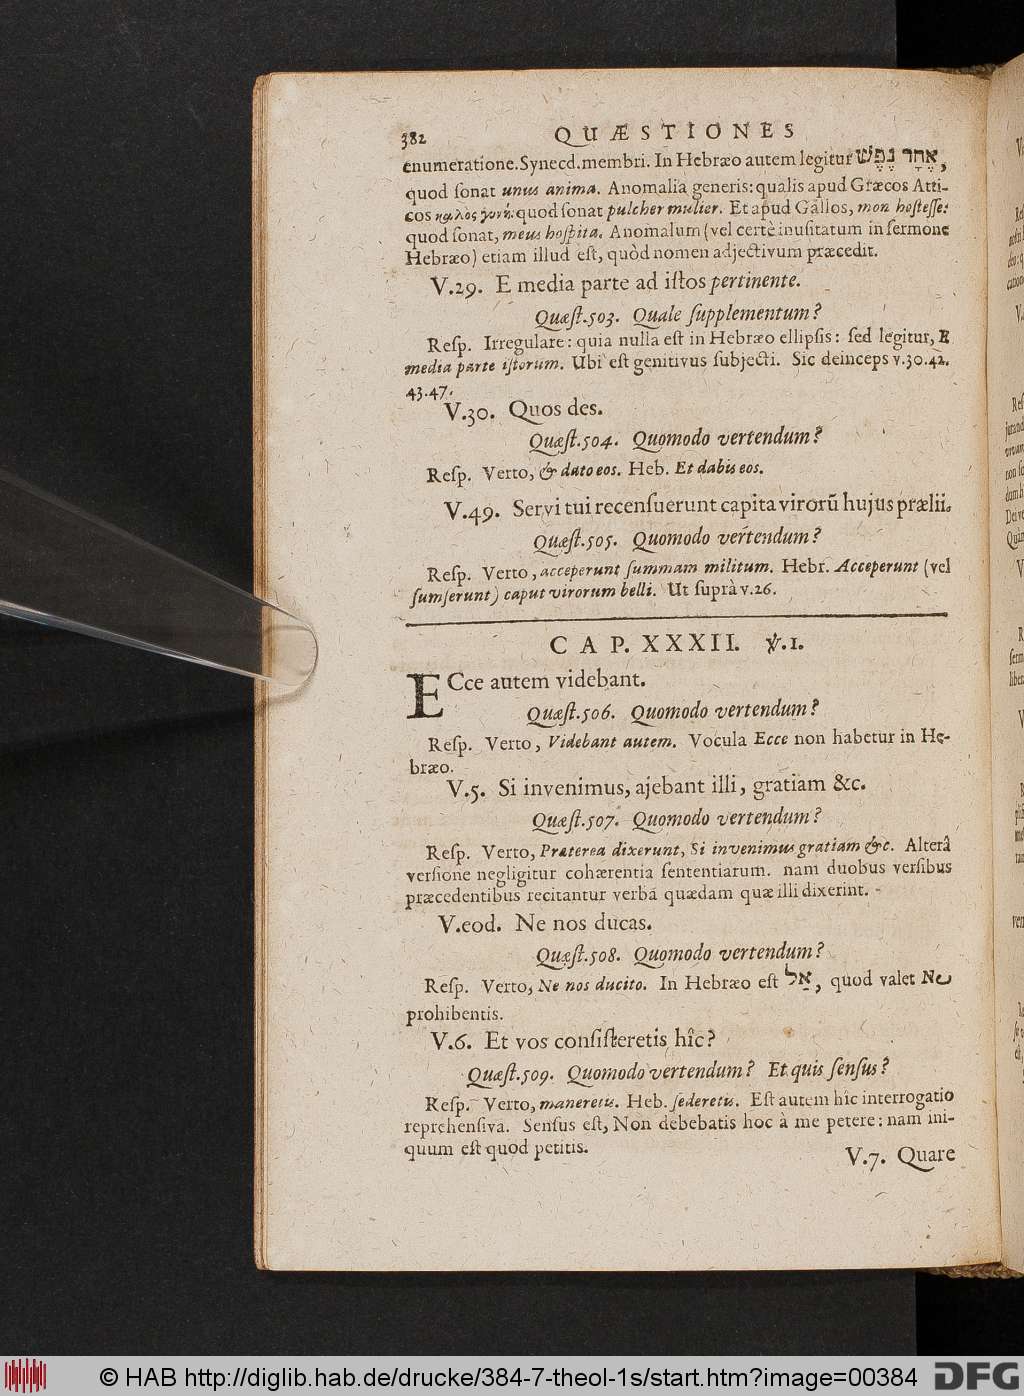 382 QUÆSTIONES
enumeratione. Synecd. membri. In Hebræo autem legitur אֶחָד נֶפֶשׁ,
quod ſonat unus anima. Anomalia generis: qualis apud Græcos Atti-
cos καλὸς γυνή: quod ſonat pulcher mulier. Et apud Gallos, mon hoſteſſe:
quod ſonat, meus hoſpita. Anomalum (vel certè inuſitatum in ſermone
Hebræo) etiam illud eſt, quòd nomen adjectivum præcedit.
V.29. E media parte ad iſtos pertinente.
Quæſt.503. Quale ſupplementum?
Reſp. Irregulare: quia nulla eſt in Hebræo ellipſis: ſed legitur, E
media parte iſtorum. Ubi eſt genitivus ſubjecti. Sic deinceps v.30.42.
43.47.
V.30. Quos des.
Quæſt.504. Quomodo vertendum?
Reſp. Verto, & dato eos. Heb. Et dabis eos.
V.49. Servi tui recenſuerunt capita virorū hujus prælii.
Quæſt.505. Quomodo vertendum?
Reſp. Verto, acceperunt ſummam militum. Hebr. Acceperunt (vel
ſumſerunt) caput virorum belli. Ut ſuprà v.26.
CAP. XXXII. ℣.1.
ECce autem videbant.
Quæſt.506. Quomodo vertendum?
Reſp. Verto, Videbant autem. Vocula Ecce non habetur in He-
bræo.
V.5. Si invenimus, ajebant illi, gratiam &c.
Quæſt.507. Quomodo vertendum?
Reſp. Verto, Præterea dixerunt, Si invenimus gratiam &c. Alterâ
verſione negligitur cohærentia ſententiarum. nam duobus verſibus
præcedentibus recitantur verba quædam quæ illi dixerint.
V.eod. Ne nos ducas.
Quæſt.508. Quomodo vertendum?
Reſp. Verto, Ne nos ducito. In Hebræo eſt אַל, quod valet Ne
prohibentis.
V.6. Et vos conſiſteretis hîc?
Quæſt.509. Quomodo vertendum? Et quis ſenſus?
Reſp. Verto, maneretis. Heb. ſederetis. Eſt autem hîc interrogatio
reprehenſiva. Senſus eſt, Non debebatis hoc à me petere: nam ini-
quum eſt quod petitis.
V.7. Quare
© HAB http://diglib.hab.de/drucke/384-7-theol-1s/start.htm?image=00384
DFG